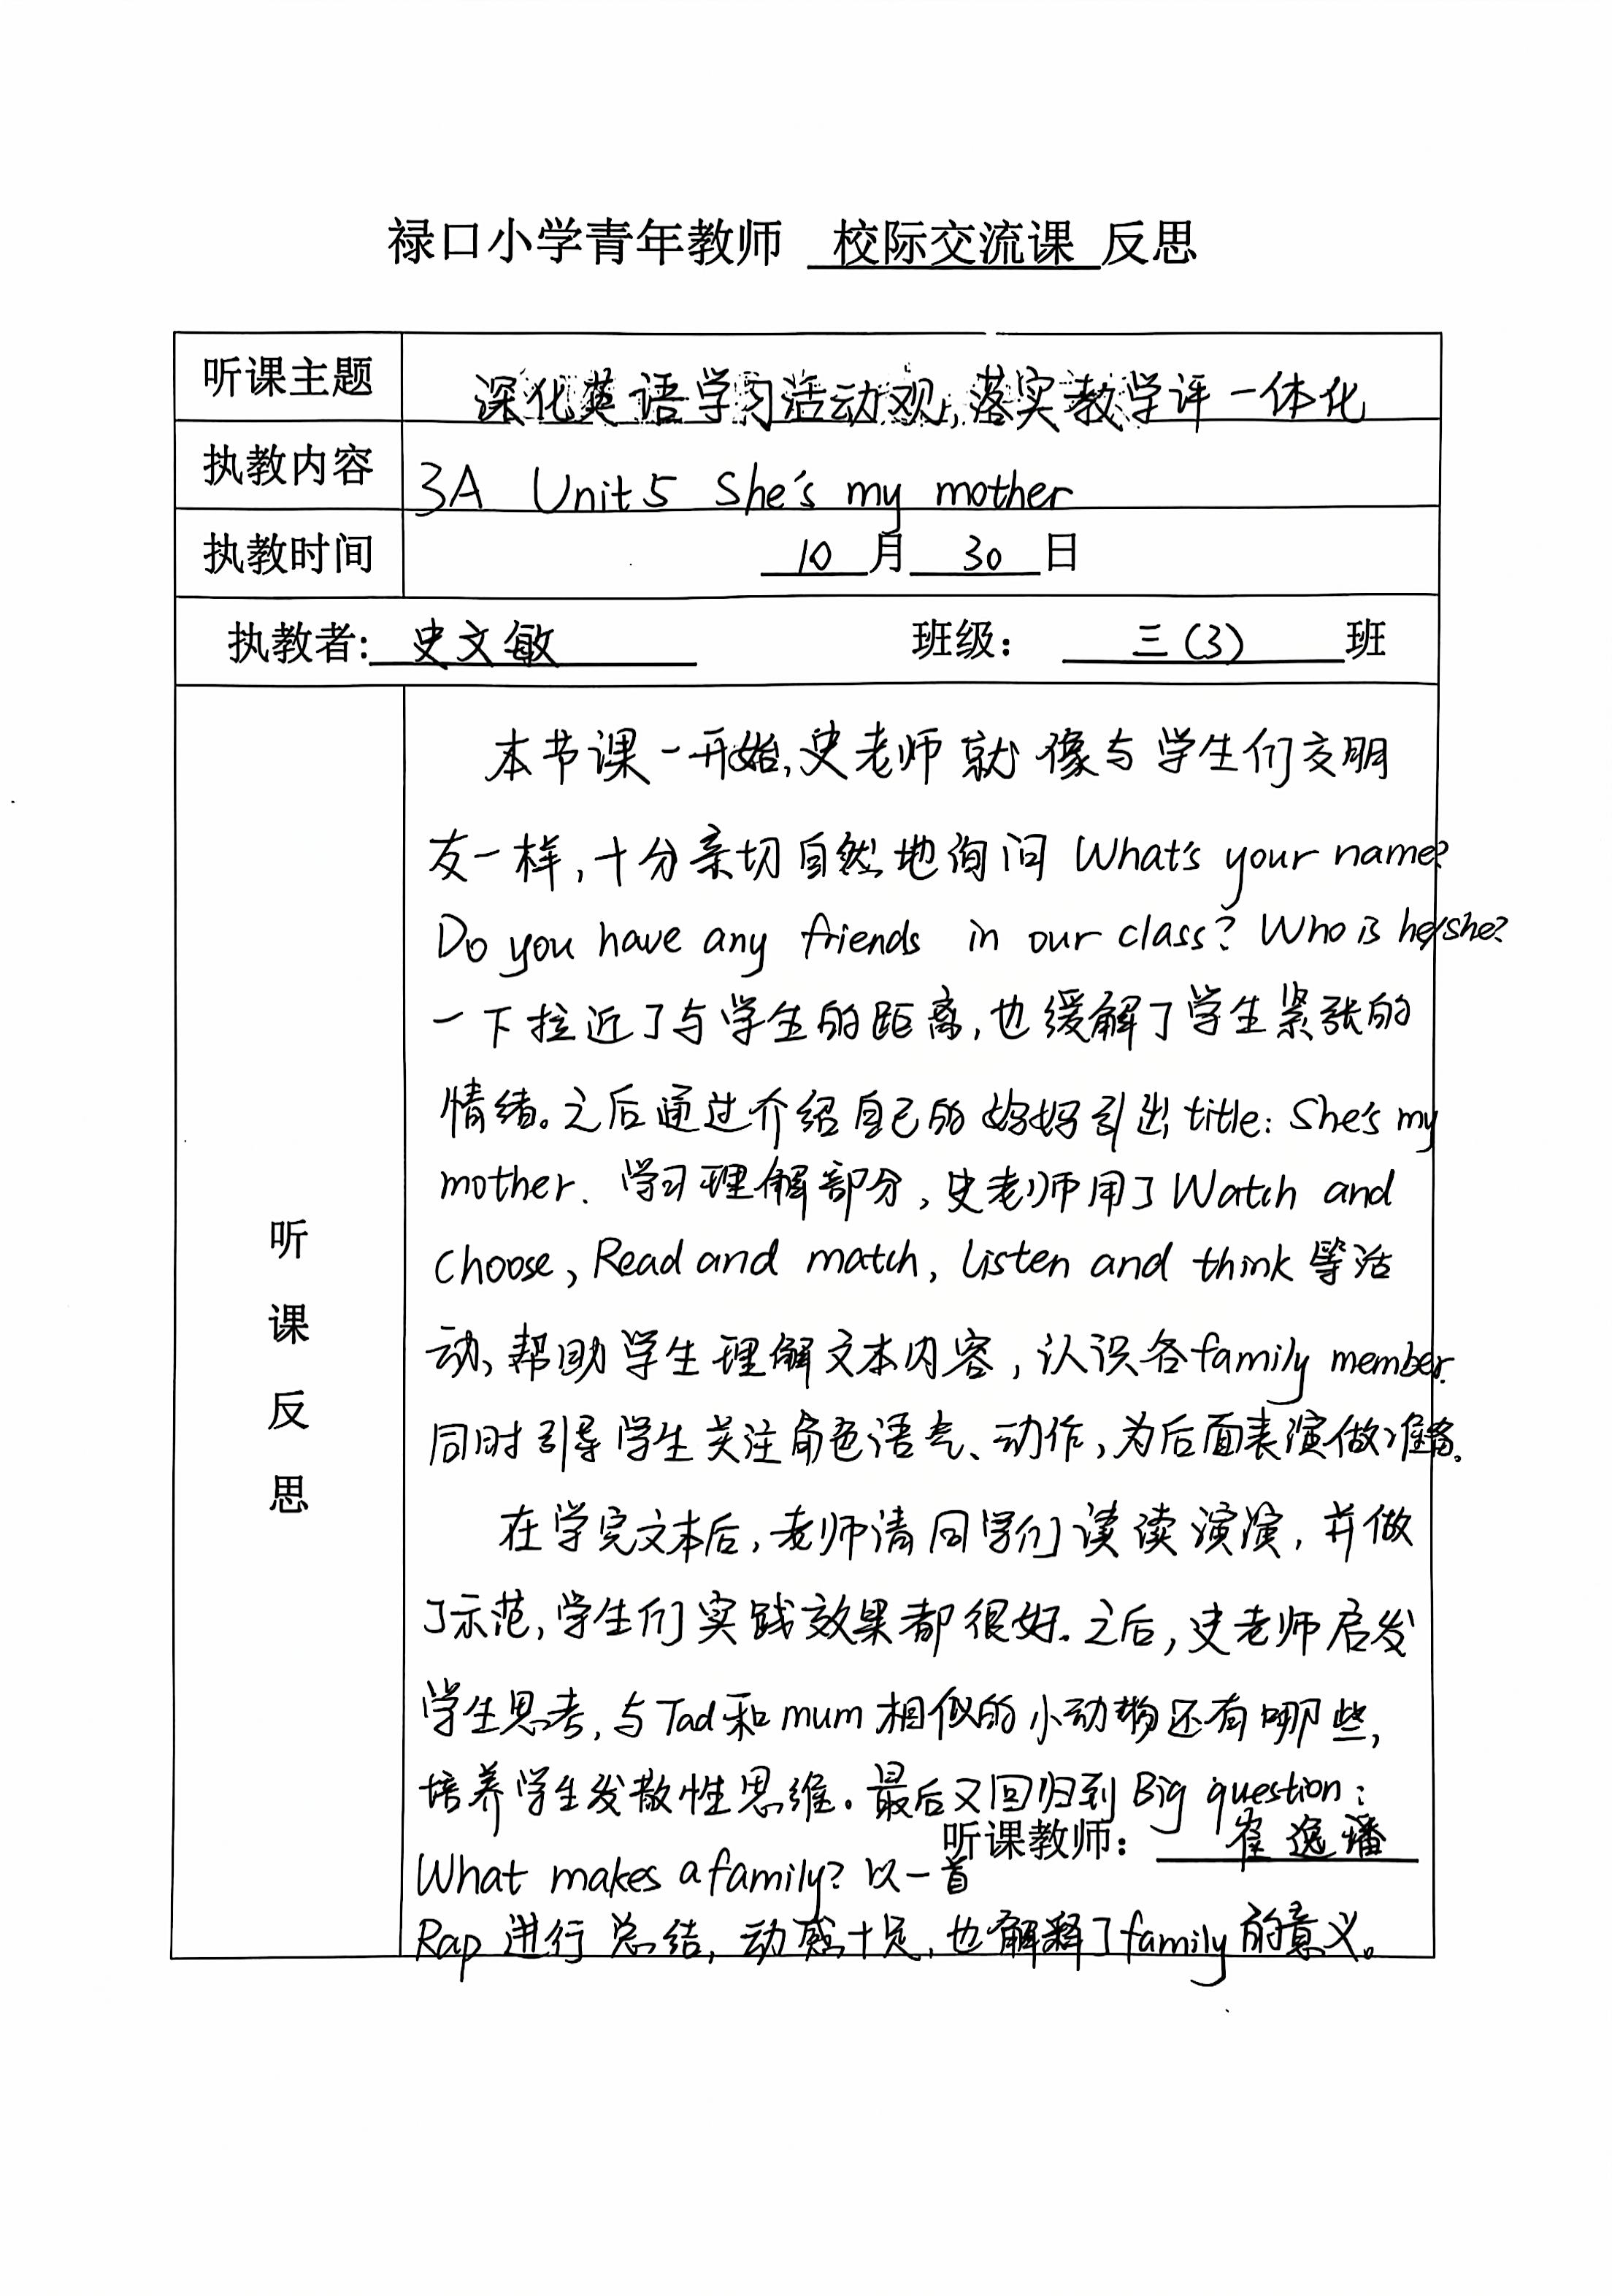 禄口小学青年教师 校际交流课 反思
听课主题 深化英语学习活动观,落实教学评一体化
执教内容 3A Unit 5 She's my mother
执教时间 10 月 30 日
执教者: 史文敏 班级: 三(3) 班
听课反思
本节课一开始,史老师就像与学生们交朋
友一样,十分亲切自然地询问 What's your name?
Do you have any friends in our class? Who is he/she?
一下拉近了与学生的距离,也缓解了学生紧张的
情绪。之后通过介绍自己的妈妈引出 title: She's my
mother. 学习理解部分,史老师用了 Watch and
choose, Read and match, Listen and think 等活
动,帮助学生理解文本内容,认识各family member.
同时引导学生关注角色语气、动作,为后面表演做准备。
在学完文本后,老师请同学们读读演演,并做
了示范,学生们实践效果都很好.之后,史老师启发
学生思考,与Tad和mum相似的小动物还有哪些,
培养学生发散性思维。最后又回归到 Big question:
What makes a family? 以一首
Rap 进行总结,动感十足,也解释了family的意义。
听课教师: 崔逸